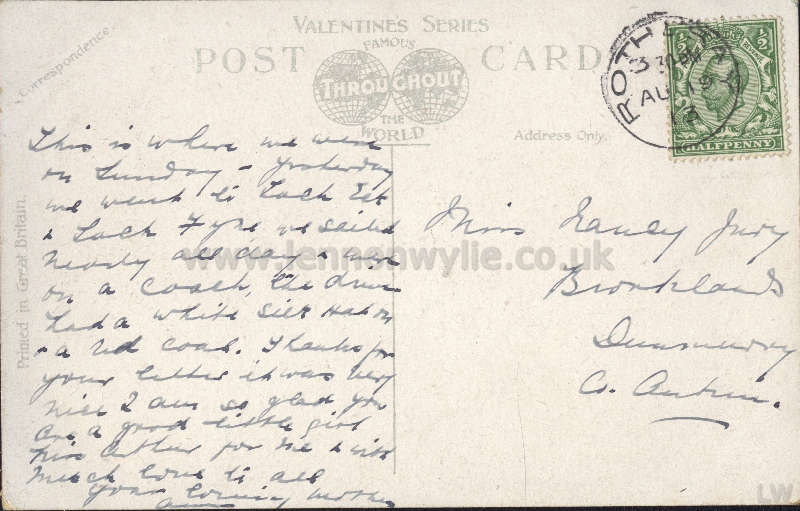 VALENTINES SERIES
POST CARD
FAMOUS
THROUGHOUT
THE
WORLD
Correspondence.
Address Only.
Printed in Great Britain.
ROTHESAY
3 30PM
AU 19
13
½ ½
HALFPENNY
This is where we were
on Sunday – yesterday
we went to Loch Eck
& Loch Fyne we sailed
nearly all day & were
on a coach, the driver
had a white silk hat on
& a red coat. Thanks for
your letter it was very
nice I am so glad you
are a good little girl
Kiss Arthur for me & with
much love to all
your loving mother
Miss Nancy Jury
Brooklands
Dunmurry
Co. Antrim.
www.lennonwylie.co.uk
LW